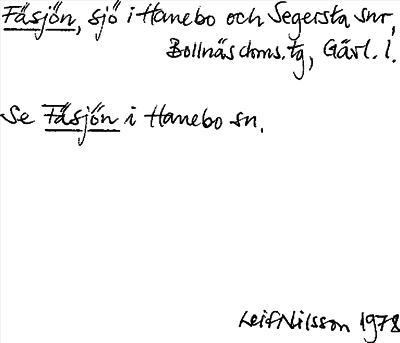 Fäsjön, sjö i Hanebo och Segersta snr,
Bollnäs doms.tg, Gävl. l.
Se Fäsjön i Hanebo sn.
Leif Nilsson 1978